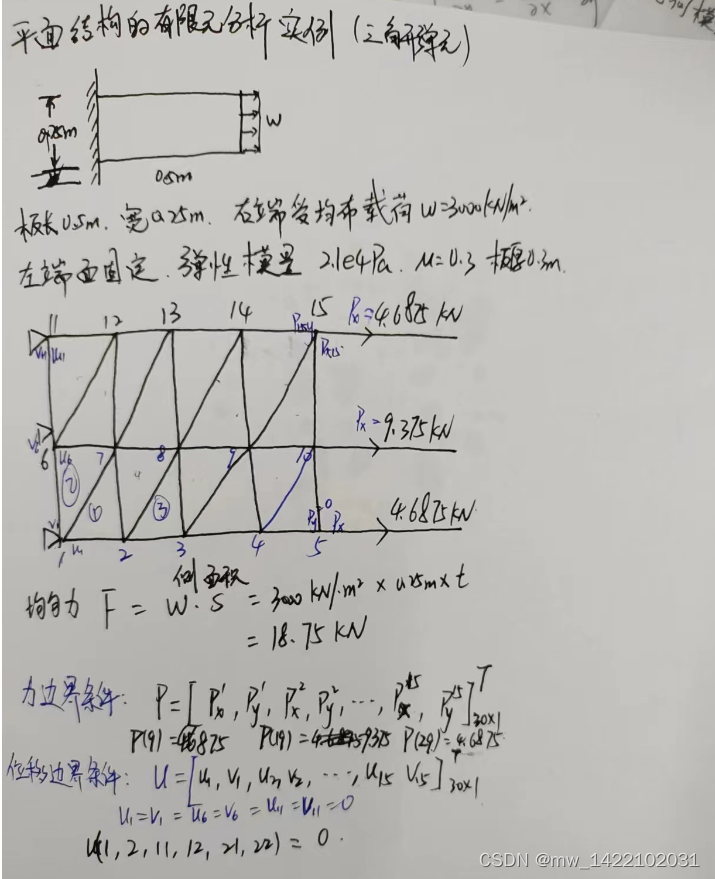 平面结构的有限元分析实例（三角形单元）
0.25m
W
0.5m
板长0.5m. 宽0.25m. 右端受均布载荷 W=3000kN/m².
左端面固定. 弹性模量 2.1e4Pa. μ=0.3 板厚0.3m.
11 12 13 14 15 Px=4.6875 kN
6 u6 7 8 9 10 Px=9.375kN
② ① ③
1 2 3 4 5 Py=0 Px 4.6875kN
侧面积
均匀力 F = W·S = 3000 kN/m² × 0.25m × t
= 18.75 kN
力边界条件: P=[Px¹, Py¹, Px², Py², ···, Px¹⁵, Py¹⁵]ᵀ30×1
P(9)=4.6875 P(19)=9.375 P(29)=4.6875
位移边界条件: U=[u1, v1, u2, v2, ···, u15 v15]ᵀ30×1
u1=v1=u6=v6=u11=v11=0
U(1, 2, 11, 12, 21, 22) = 0.
CSDN @mw_1422102031